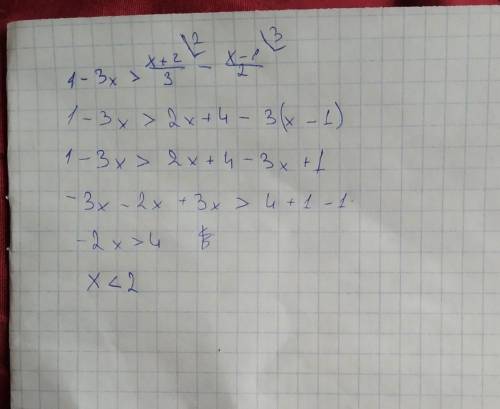 1 - 3x > \frac{x+2}{3} \overset{2}{\backslash} - \frac{x-1}{2} \overset{3}{\backslash}
1 - 3x > 2x + 4 - 3(x - 1)
1 - 3x > 2x + 4 - 3x + 1
-3x - 2x + 3x > 4 + 1 - 1
-2x > 4
x < 2